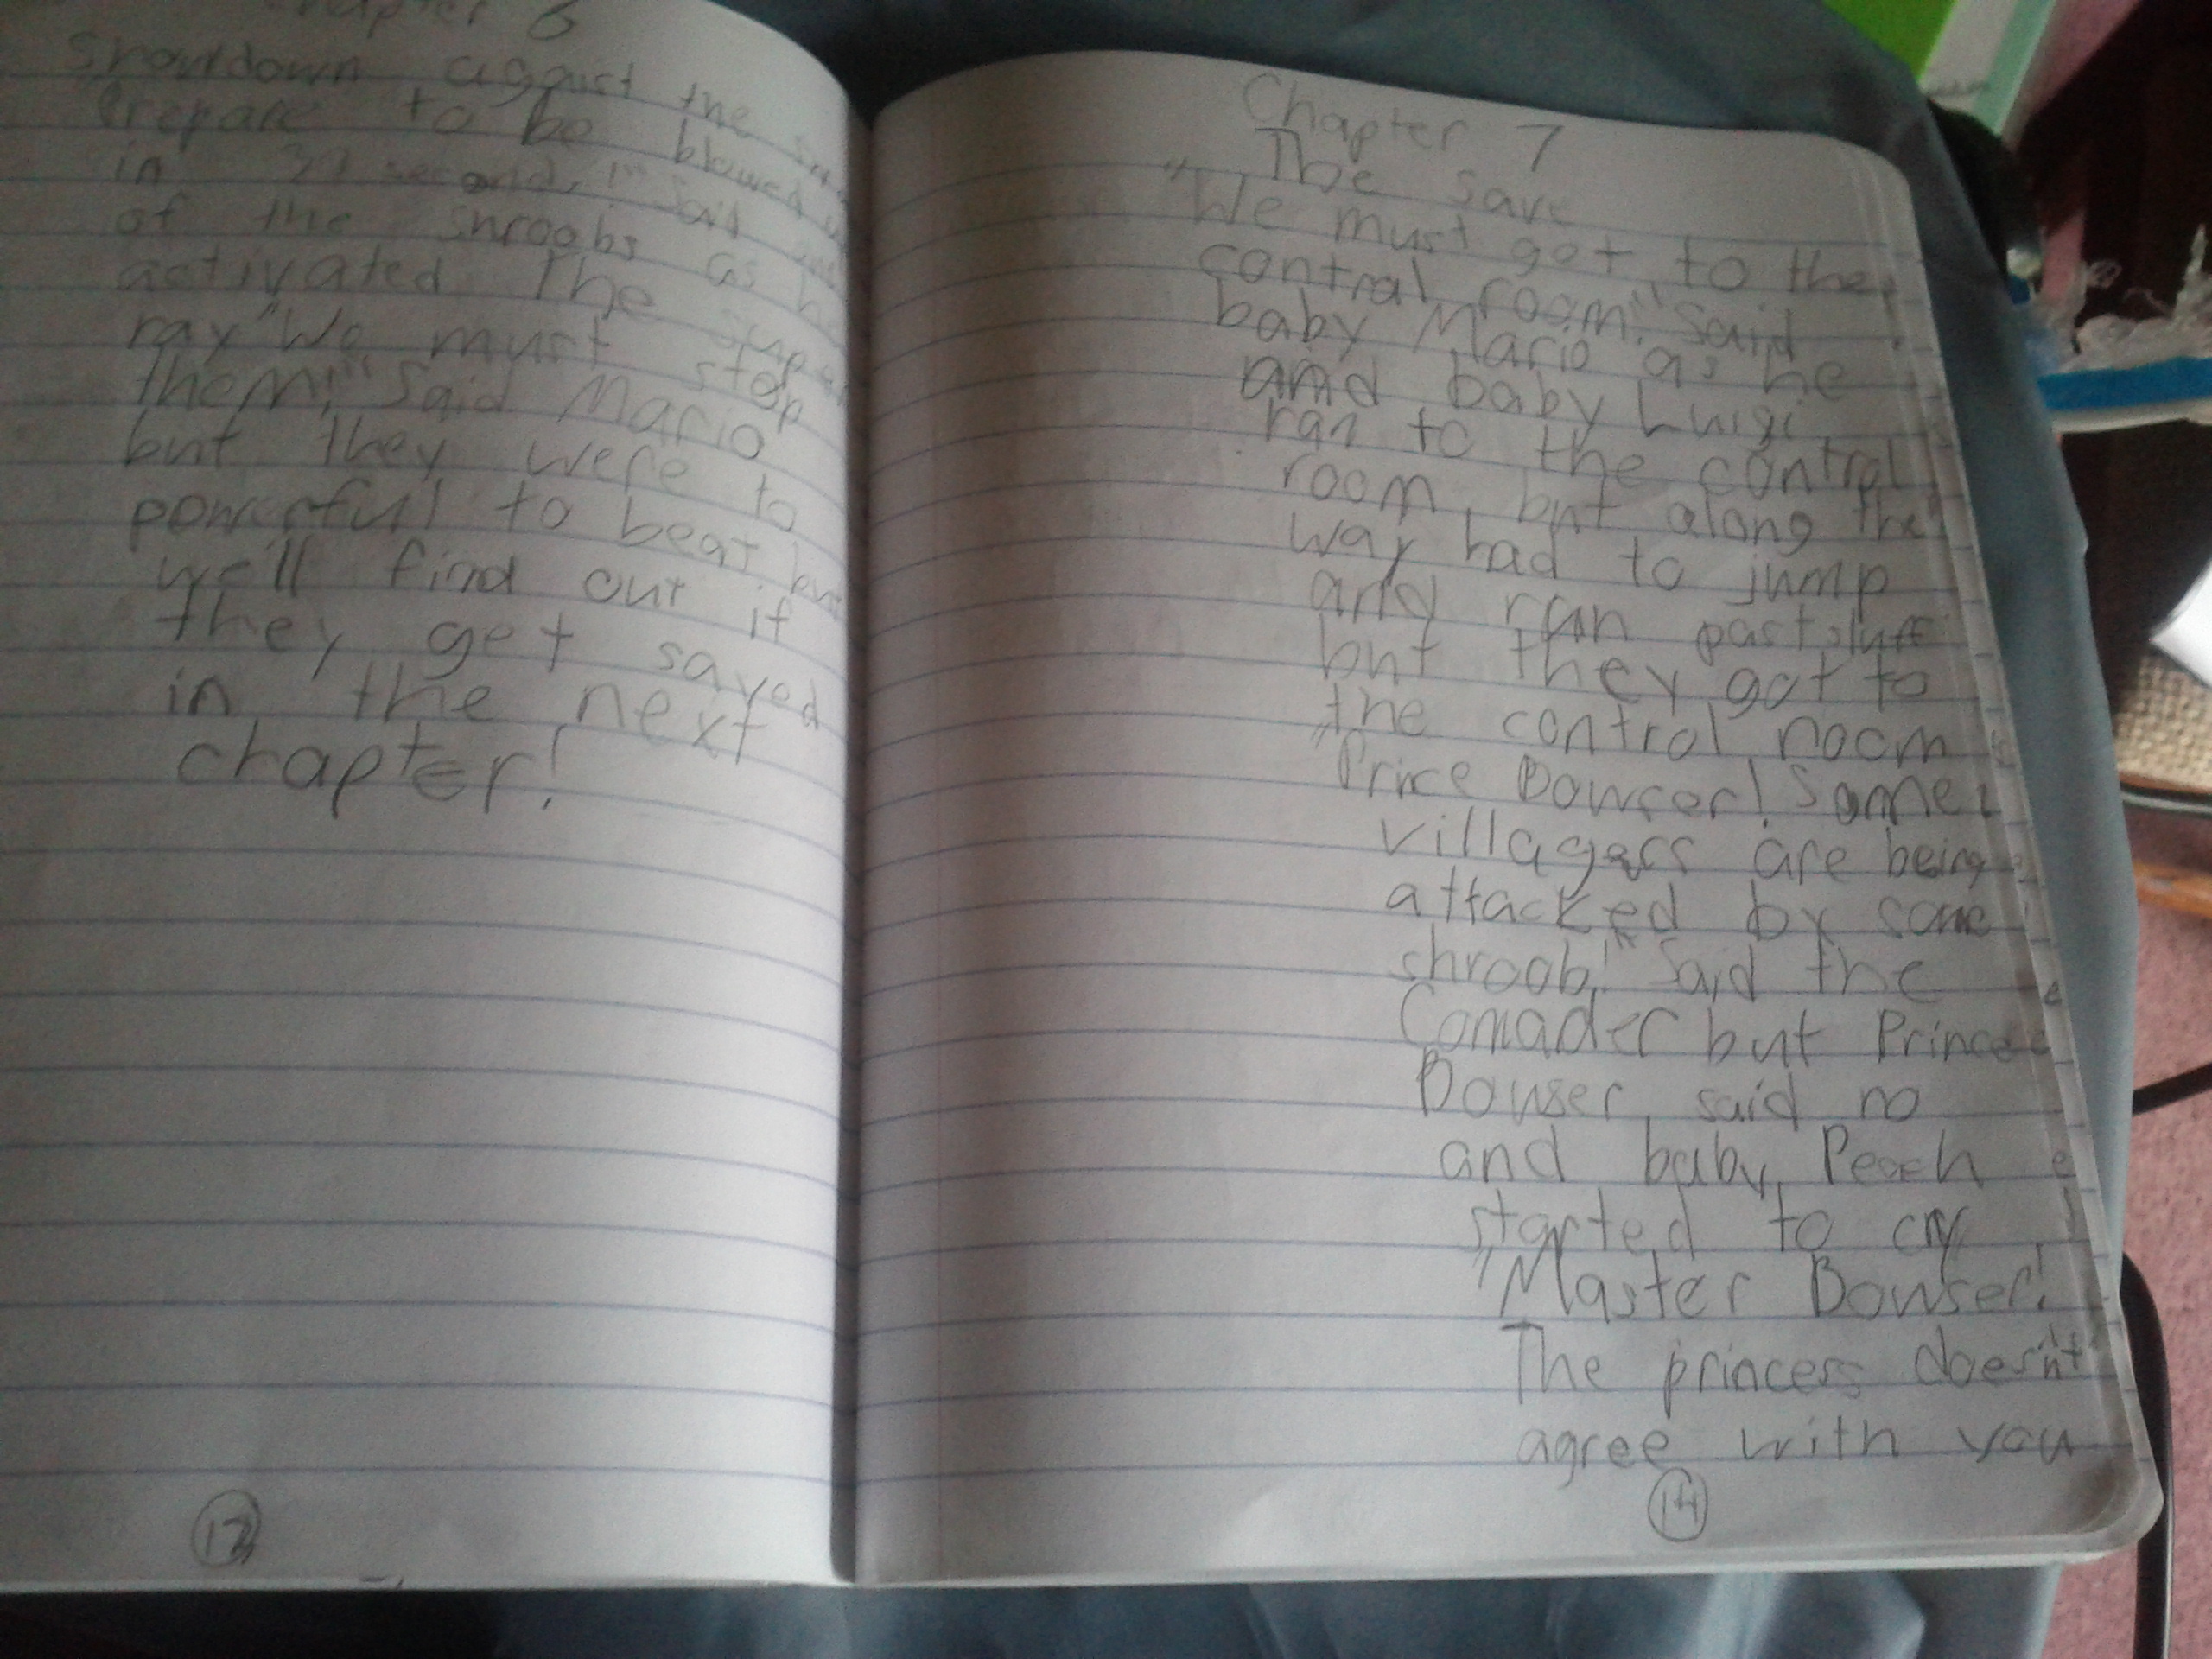 Chapter 6
Showdown aggaist the
"Prepare to be blowed
in seconds!" Said one
of the shroobs as he
activated the super
ray "We must stop
them!" Said Mario
but they were to
powerful to beat but
we'll find out if
they get saved
in the next
chapter!
12
Chapter 7
The save
"We must got to the
control room!" Said
baby Mario as he
and baby Luigi
ran to the control
room but along the
way had to jump
and ran past stuff
but they got to
the control room
"Price Bowser! Some
villagers are being
attacked by some
shroob!" Said the
Comader but Prince
Bowser said no
and baby Peach
started to cry
"Master Bowser!
The princess doesn't
agree with you
14